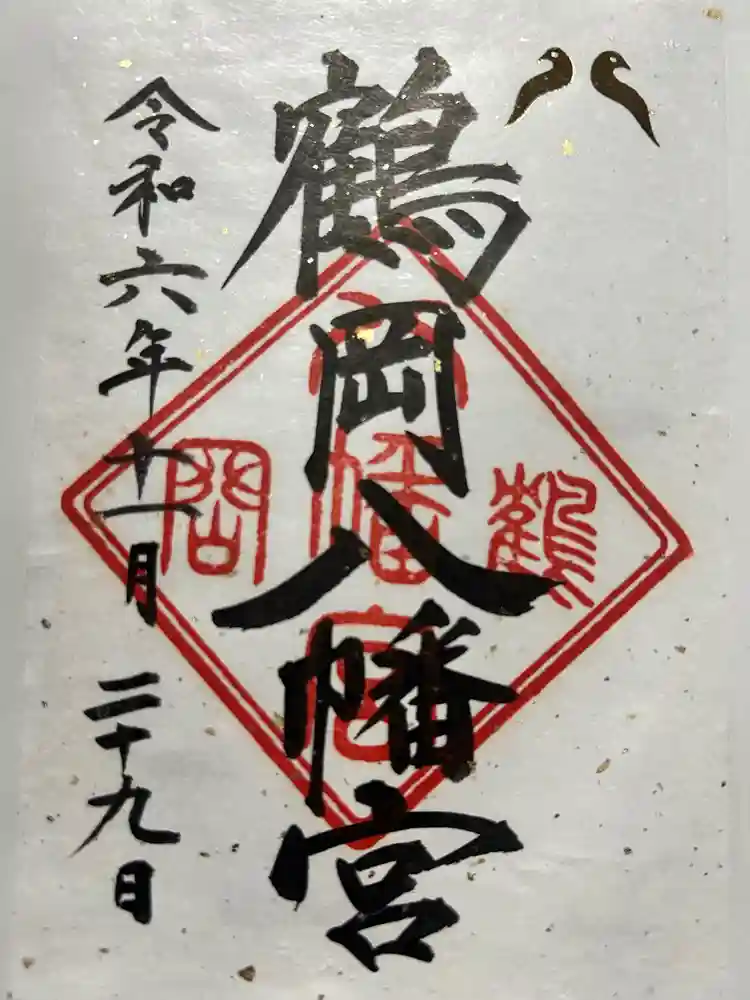 八
鶴岡八幡宮
鶴
八幡宮
岡
令和六年十一月二十九日